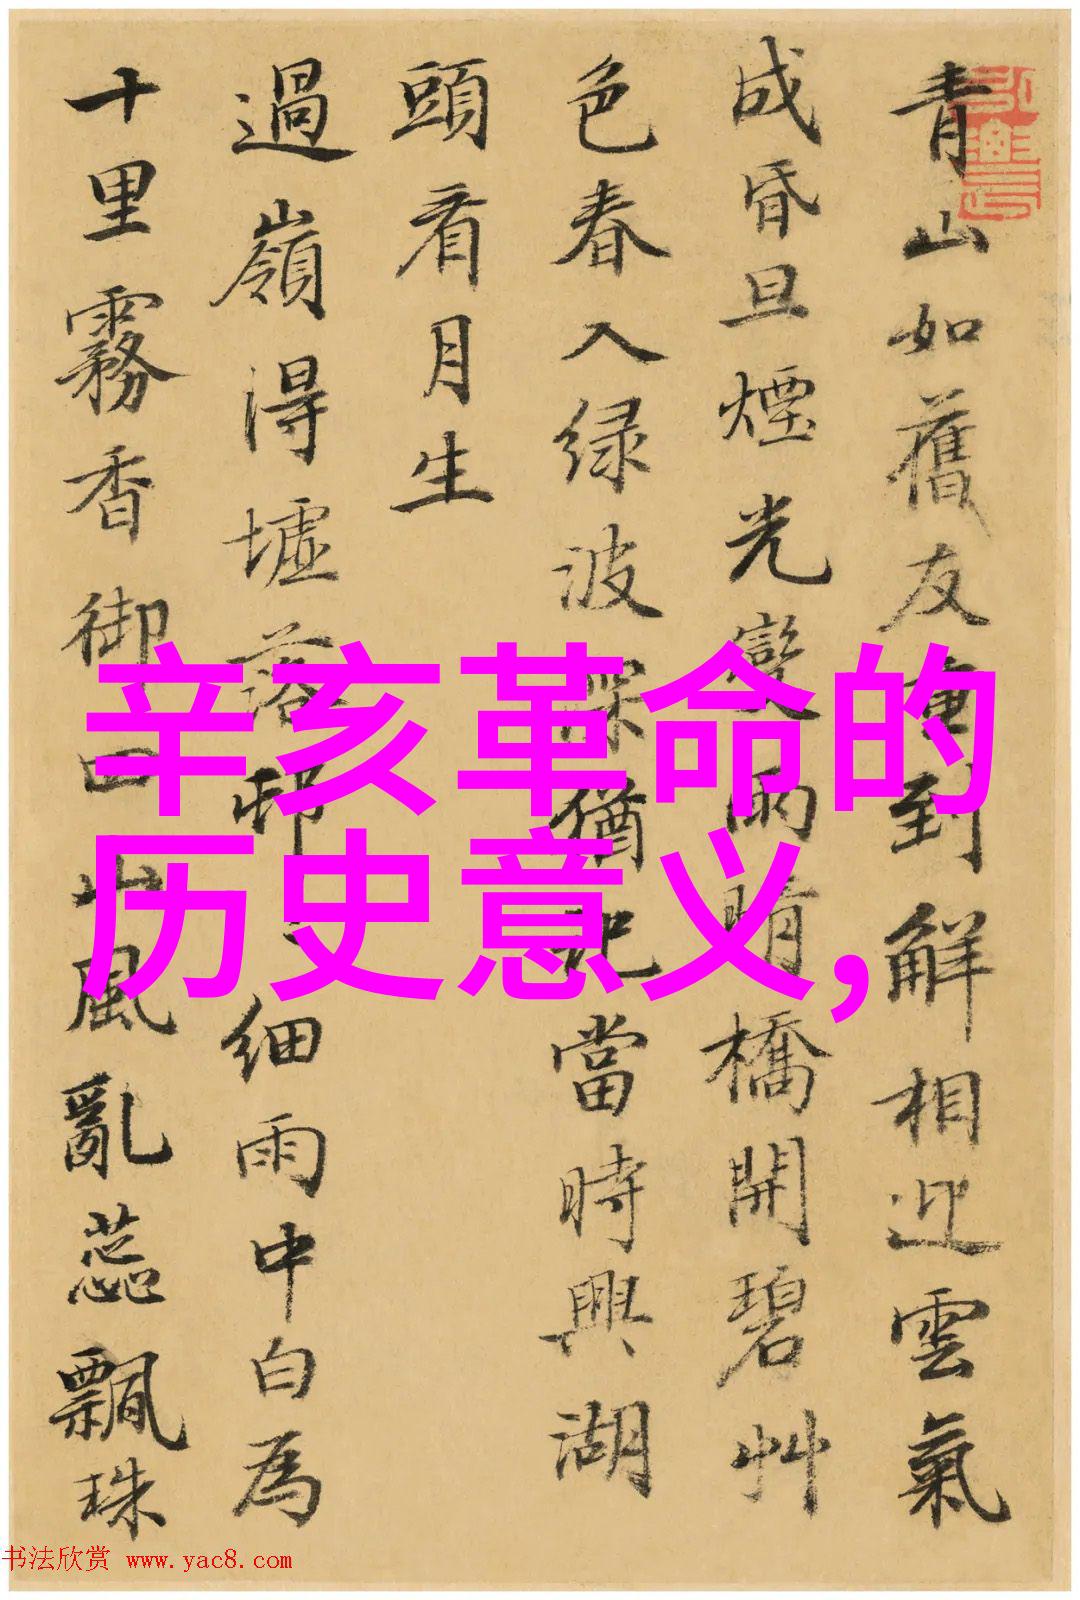 青山如舊友重到解相迎雲氣
成昏旦煙光變雨晴橋開碧艸
色春入绿波深猶記當時興湖
頭看月生
過嶺得墟落邨細雨中白為
十里霧香御四山風亂蕊飄珠
辛亥革命的
历史意义,
书法欣赏 www.yac8.com